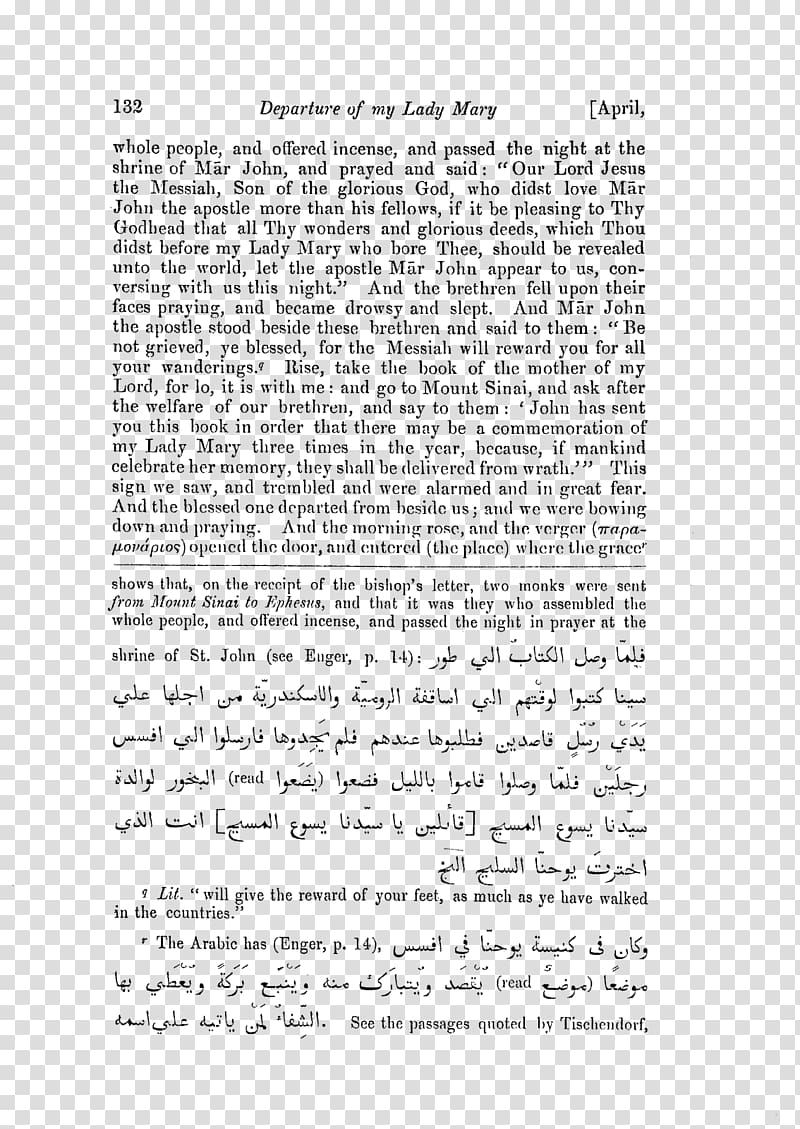 132 Departure of my Lady Mary [April,
whole people, and offered incense, and passed the night at the
shrine of Mār John, and prayed and said : “Our Lord Jesus
the Messiah, Son of the glorious God, who didst love Mār
John the apostle more than his fellows, if it be pleasing to Thy
Godhead that all Thy wonders and glorious deeds, which Thou
didst before my Lady Mary who bore Thee, should be revealed
unto the world, let the apostle Mār John appear to us, con-
versing with us this night.” And the brethren fell upon their
faces praying, and became drowsy and slept. And Mār John
the apostle stood beside these brethren and said to them : “Be
not grieved, ye blessed, for the Messiah will reward you for all
your wanderings.q Rise, take the book of the mother of my
Lord, for lo, it is with me : and go to Mount Sinai, and ask after
the welfare of our brethren, and say to them : ‘John has sent
you this book in order that there may be a commemoration of
my Lady Mary three times in the year, because, if mankind
celebrate her memory, they shall be delivered from wrath.’” This
sign we saw, and trembled and were alarmed and in great fear.
And the blessed one departed from beside us ; and we were bowing
down and praying. And the morning rose, and the verger (παρα-
μονάριος) opened the door, and entered (the place) where the gracer
shows that, on the receipt of the bishop’s letter, two monks were sent
from Mount Sinai to Ephesus, and that it was they who assembled the
whole people, and offered incense, and passed the night in prayer at the
shrine of St. John (see Enger, p. 14): فلمّا وصل الكتابُ الي طور
سينا كتبوا لوقتهم الي اساقفة الروميّة والاسكندريّة من اجلها علي
يَدَيْ رُسُلٍ قاصدين فطلبوها عندهم فلم يَجِدوها فارسلوا الي افسس
رجلَيْن فلمّا وصلوا قاموا بالليل فضعوا (read يَضَعوا) البخور لوالدة
سيّدنا يسوع المسيح [قائلين يا سيّدنا يسوع المسيح] انت الذي
اخترتَ يوحنّا السليح الخ
q Lit. “will give the reward of your feet, as much as ye have walked
in the countries.”
r The Arabic has (Enger, p. 14), وكان فى كنيسة يوحنّا في افسس
موضعًا (read موضعٌ) يُقْصَد ويُتبارَك منه ويَنْبَع بَرَكةً ويُعْطَي بها
الشِّفاءُ لمَنْ ياتيه علي اسمه. See the passages quoted by Tischendorf,